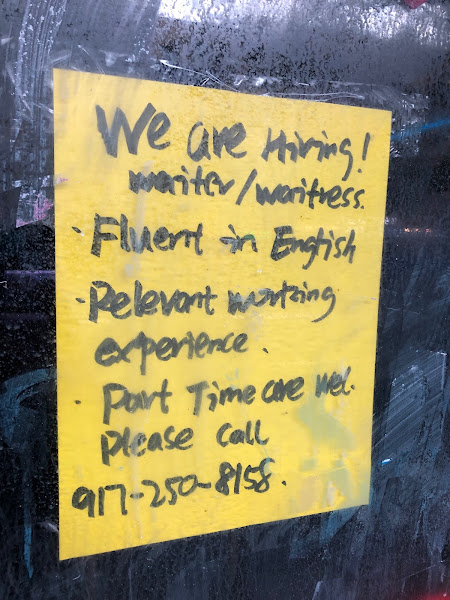 We are Hiring!
waiter/waitress.
· Fluent in English
· Relevant working
experience.
· Part Time are wel.
Please Call
917-250-8158.